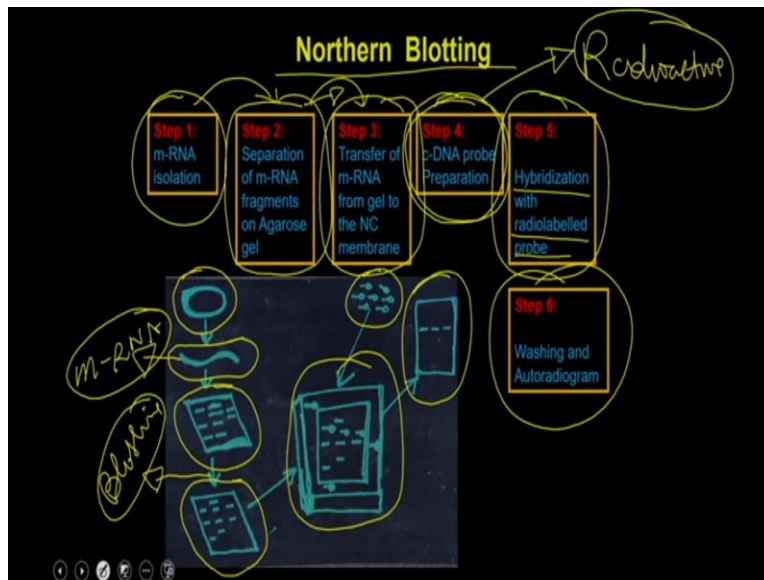 Northern Blotting
Radioactive
Step 1:
m-RNA
isolation
Step 2:
Separation
of m-RNA
fragments
on Agarose
gel
Step 3:
Transfer of
m-RNA
from gel to
the NC
membrane
Step 4:
c-DNA probe
Preparation
Step 5:
Hybridization
with
radiolabelled
probe
Step 6:
Washing and
Autoradiogram
m-RNA